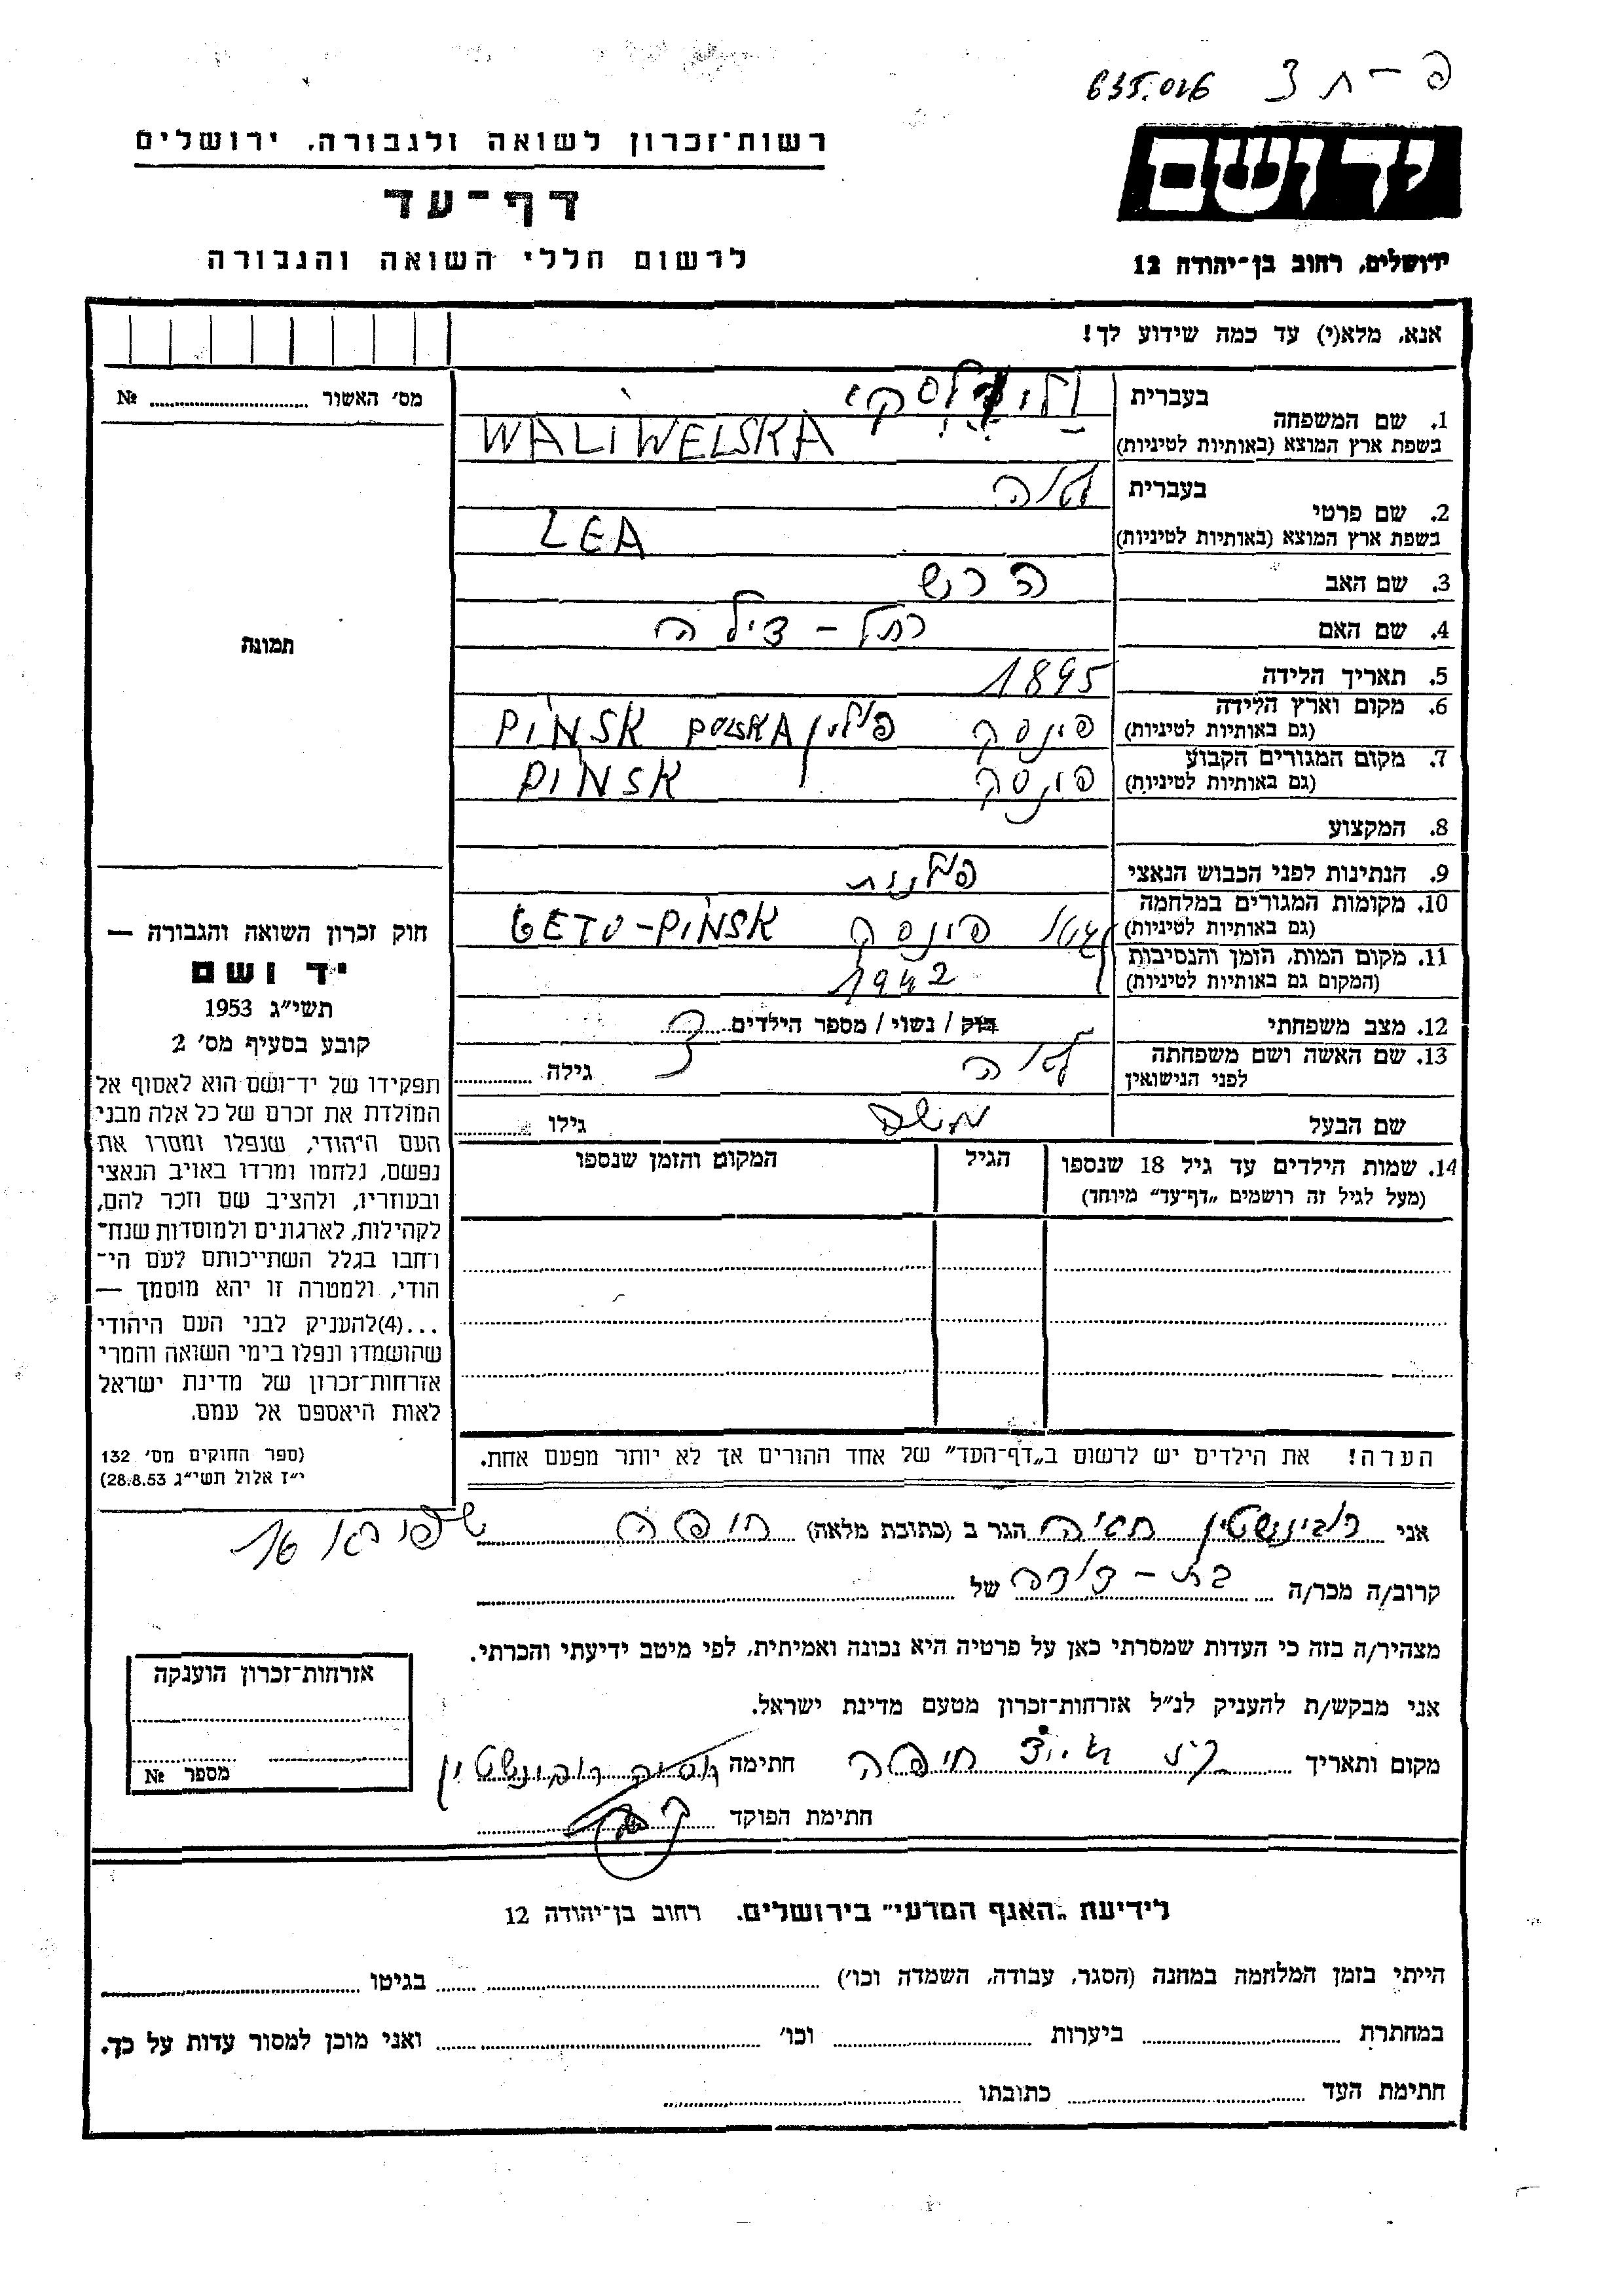 635.026 פ - ת 3
רשות־זכרון לשואה ולגבורה, ירושלים
יד ושם
דף־עד
לרשום חללי השואה והגבורה
ירושלים, רחוב בן־יהודה 12
אנא, מלא(י) עד כמה שידוע לך!
מס׳ האשור № ........
1. שם המשפחה
בעברית
בשפת ארץ המוצא (באותיות לטיניות) WALIWELSKA
2. שם פרטי
בעברית לאה
בשפת ארץ המוצא (באותיות לטיניות) LEA
3. שם האב הרש
4. שם האם רחל - צילה
תמונה
5. תאריך הלידה 1895
6. מקום וארץ הלידה
(גם באותיות לטיניות) פינסק פולין PINSK POLSKA
7. מקום המגורים הקבוע
(גם באותיות לטיניות) פינסק PINSK
8. המקצוע
9. הנתינות לפני הכבוש הנאצי פולנית
10. מקומות המגורים במלחמה
(גם באותיות לטיניות) גטו פינסק GETO-PINSK
11. מקום המות, הזמן והנסיבות
(המקום גם באותיות לטיניות) 1942
12. מצב משפחתי רוק / נשוי / מספר הילדים
13. שם האשה ושם משפחתה
לפני הנישואין לאה גילה
שם הבעל משה גילו
14. שמות הילדים עד גיל 18 שנספו
(מעל לגיל זה רושמים „דף־עד” מיוחד)
הגיל
המקום והזמן שנספו
חוק זכרון השואה והגבורה —
יד ושם
תשי״ג 1953
קובע בסעיף מס׳ 2
תפקידו של יד־ושם הוא לאסוף אל
המולדת את זכרם של כל אלה מבני
העם היהודי, שנפלו ומסרו את
נפשם, נלחמו ומרדו באויב הנאצי
ובעוזריו, ולהציב שם וזכר להם,
לקהילות, לארגונים ולמוסדות שנח־
רבו בגלל השתייכותם לעם הי־
הודי, ולמטרה זו יהא מוסמך —
...(4) להעניק לבני העם היהודי
שהושמדו ונפלו בימי השואה והמרי
אזרחות־זכרון של מדינת ישראל
לאות היאספם אל עמם.
(ספר החוקים מס׳ 132
י״ז אלול תשי״ג 28.8.53)
הערה! את הילדים יש לרשום ב„דף־העד” של אחד ההורים אך לא יותר מפעם אחת.
אני רובינשטין חסיה הגר ב (כתובת מלאה) חיפה שפירא 16
קרוב/ה מכר/ה בת - דודה של
מצהיר/ה בזה כי העדות שמסרתי כאן על פרטיה היא נכונה ואמיתית, לפי מיטב ידיעתי והכרתי.
אני מבקש/ת להעניק לנ״ל אזרחות־זכרון מטעם מדינת ישראל.
מקום ותאריך חיפה חתימה חסיה רובינשטין
חתימת הפוקד
אזרחות־זכרון הוענקה
מספר №
לידיעת „האגף המדעי” בירושלים, רחוב בן־יהודה 12
הייתי בזמן המלחמה במחנה (הסגר, עבודה, השמדה וכו׳) ........ בגיטו ........
במחתרת ........ ביערות ........ וכו׳ ........ ואני מוכן למסור עדות על כך.
חתימת העד ........ כתובתו ........